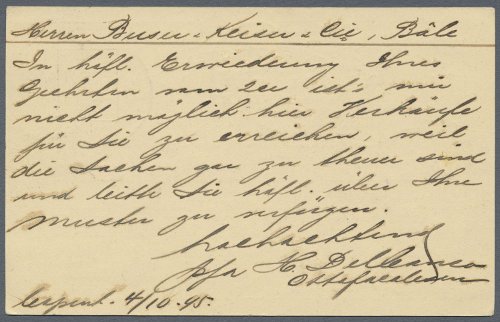 Herren Buser & Keiser & Cie, Bâle
In höfl. Erwiederung Ihres
Geehrten vom 2er ist's mir
nicht möglich hier Verkäufe
für Sie zu erreichen, weil
die Sachen gar zu theuer sind
und bitte Sie höfl. über Ihre
Muster zu verfügen.
Hochachtend
ppa H. Delleanso
4/10.95.